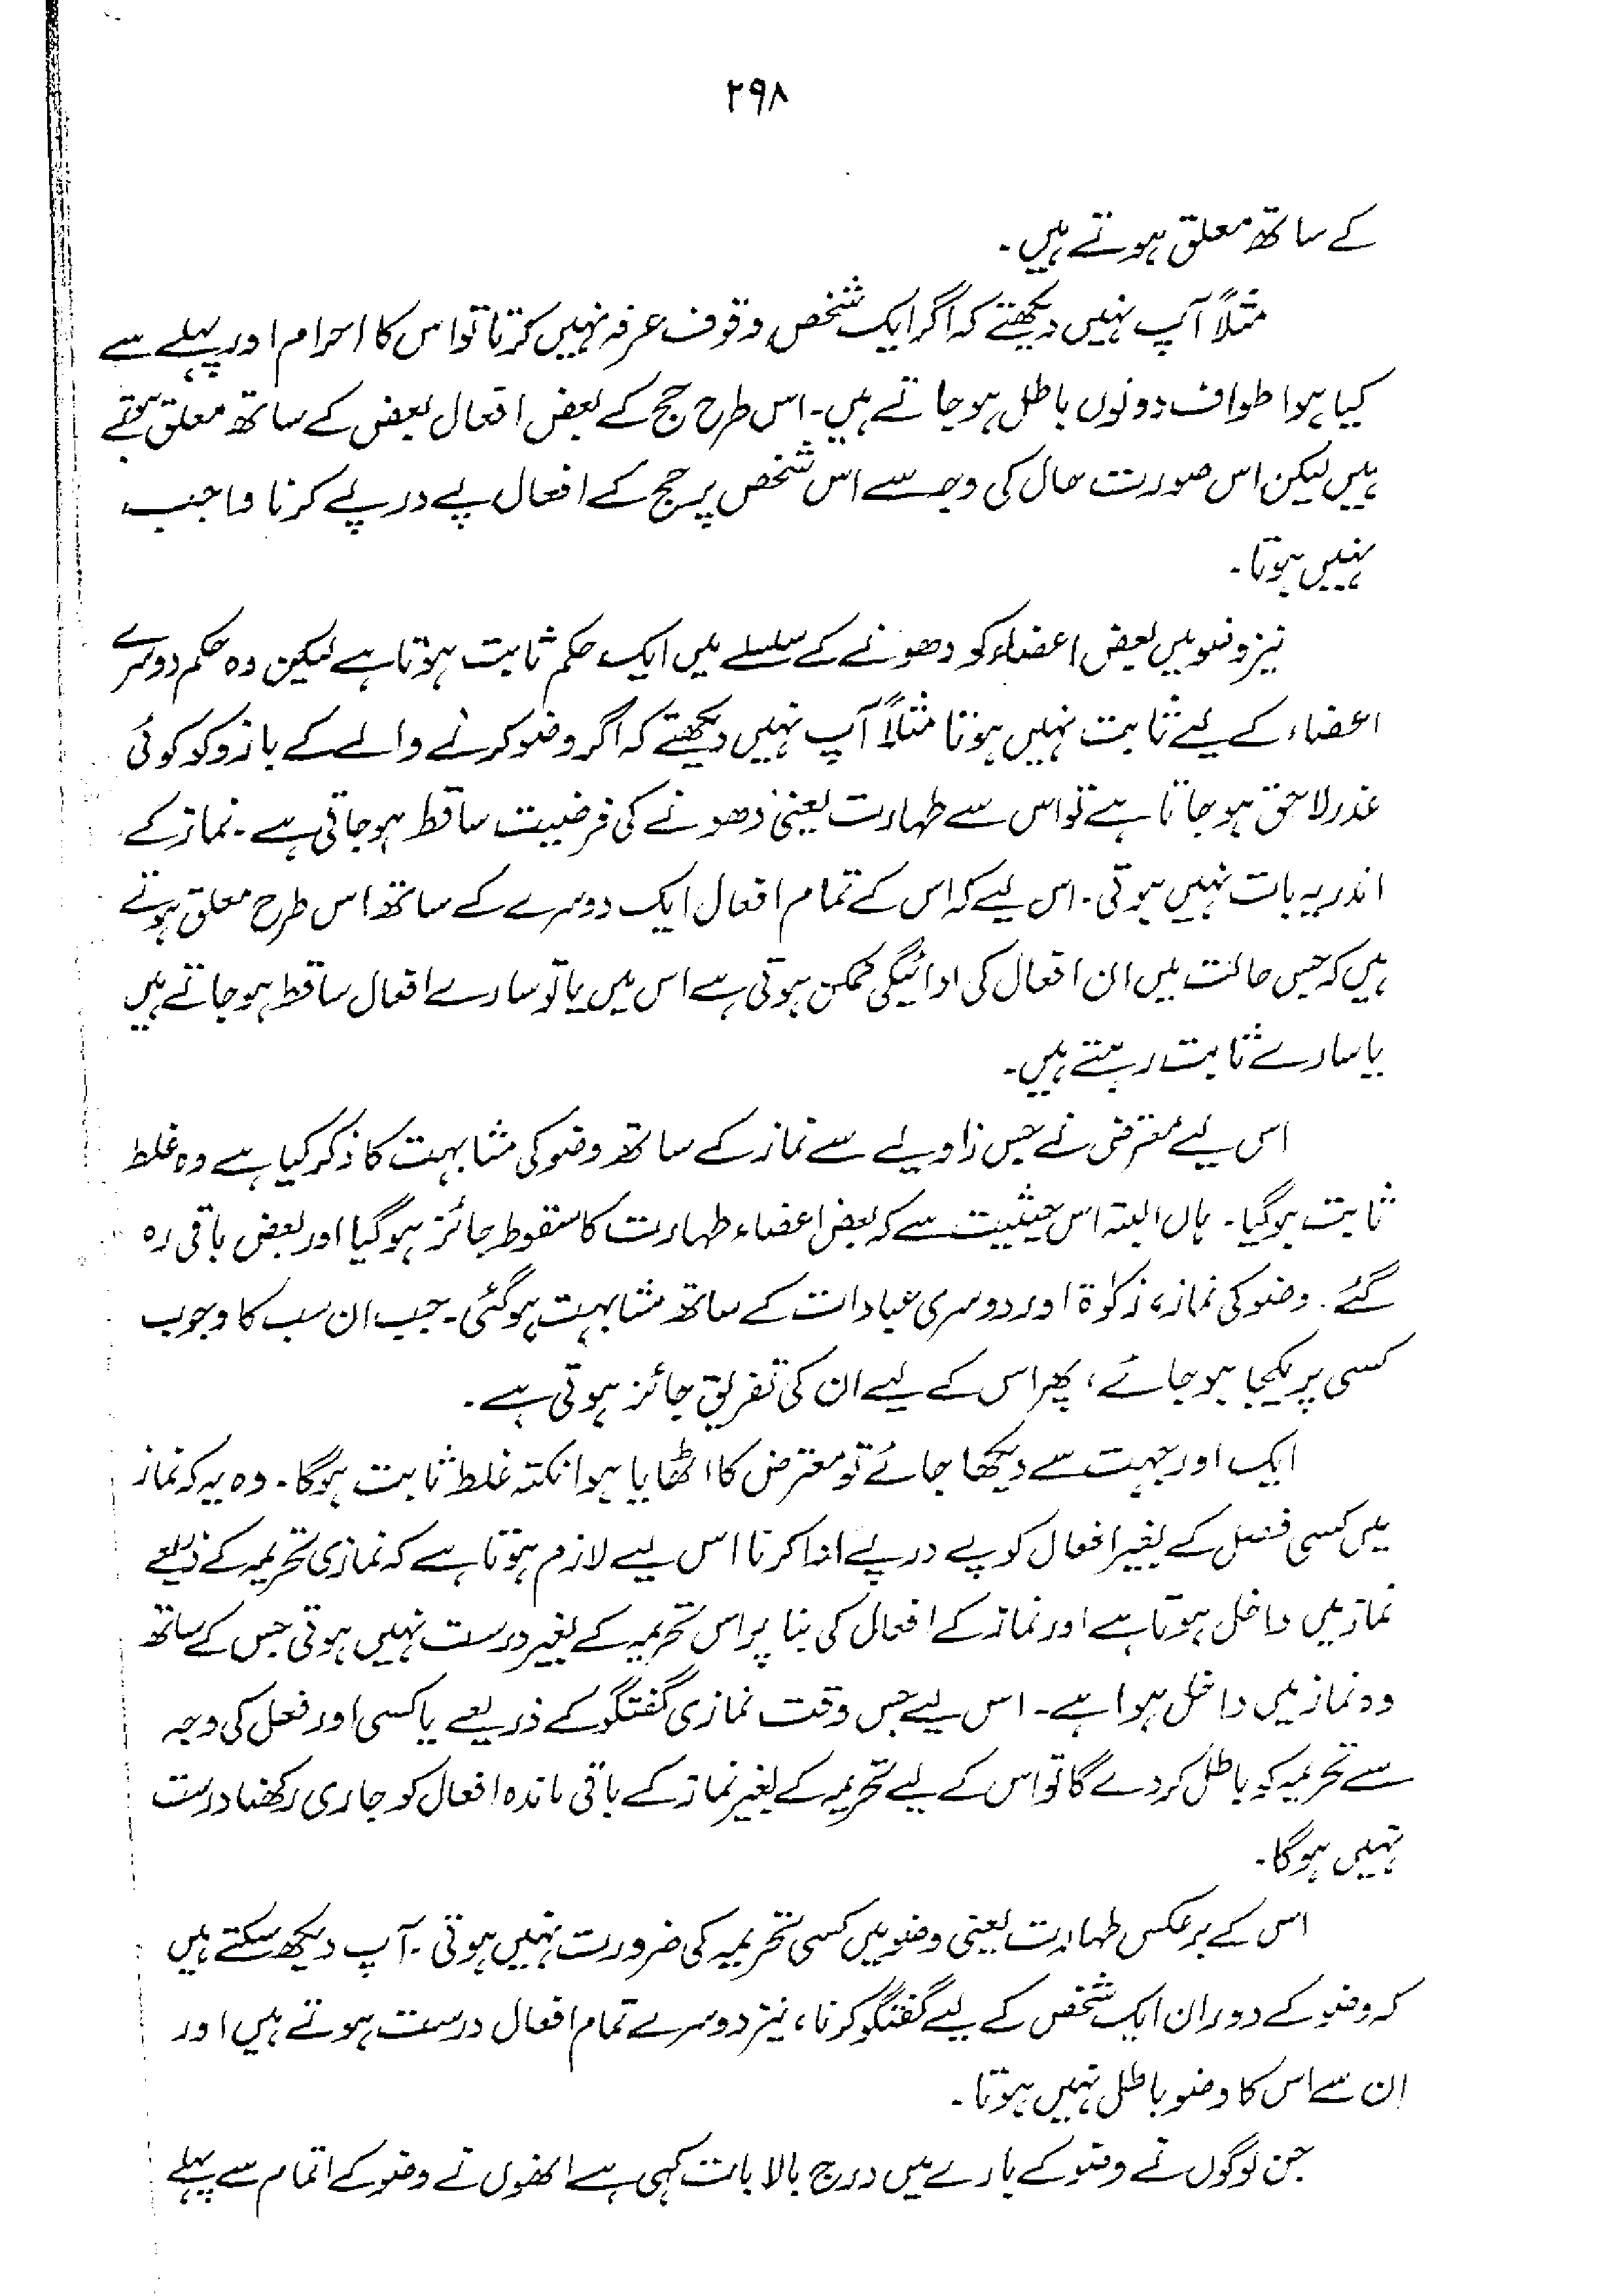 ۲۹۸
کے ساتھ معلق ہوتے ہیں۔
مثلاً آپ نہیں دیکھتے کہ اگر ایک شخص وقوف عرفہ نہیں کرتا تو اس کا احرام اور پہلے سے
کیا ہوا طواف دونوں باطل ہو جاتے ہیں۔ اس طرح حج کے بعض افعال بعض کے ساتھ معلق ہوتے
ہیں لیکن اس صورت حال کی وجہ سے اس شخص پر حج کے افعال پے در پے کرنا واجب
نہیں ہوتا۔
نیز وضو میں بعض اعضاء کو دھونے کے سلسلے میں ایک حکم ثابت ہوتا ہے لیکن وہ حکم دوسرے
اعضاء کے لیے ثابت نہیں ہوتا مثلاً آپ نہیں دیکھتے کہ اگر وضو کرنے والے کے بازو کو کوئی
عذر لاحق ہو جاتا ہے تو اس سے طہارت یعنی دھونے کی فرضیت ساقط ہو جاتی ہے۔ نماز کے
اندر یہ بات نہیں ہوتی۔ اس لیے کہ اس کے تمام افعال ایک دوسرے کے ساتھ اس طرح معلق ہوتے
ہیں کہ جس حالت میں ان افعال کی ادائیگی ممکن ہوتی ہے اس میں یا تو سارے افعال ساقط ہو جاتے ہیں
یا سارے ثابت رہتے ہیں۔
اس لیے معترض نے جس زاویے سے نماز کے ساتھ وضو کی مشابہت کا ذکر کیا ہے وہ غلط
ثابت ہو گیا۔ ہاں البتہ اس حیثیت سے کہ بعض اعضاء طہارت کا سقوط جائز ہو گیا اور بعض باقی رہ
گئے۔ وضو کی نماز، زکوٰۃ اور دوسری عبادات کے ساتھ مشابہت ہو گئی۔ جب ان سب کا وجوب
کسی پر یکجا ہو جائے، پھر اس کے لیے ان کی تفریق جائز ہوتی ہے۔
ایک اور جہت سے دیکھا جائے تو معترض کا اٹھایا ہوا نکتہ غلط ثابت ہوگا۔ وہ یہ کہ نماز
میں کسی فصل کے بغیر افعال کو پے در پے ادا کرنا اس لیے لازم ہوتا ہے کہ نمازی تحریمہ کے ذریعے
نماز میں داخل ہوتا ہے اور نماز کے افعال کی بنا پر اس تحریمہ کے بغیر درست نہیں ہوتی جس کے ساتھ
وہ نماز میں داخل ہوا ہے۔ اس لیے جس وقت نمازی گفتگو کے ذریعے یا کسی اور فعل کی وجہ
سے تحریمہ کو باطل کر دے گا تو اس کے لیے تحریمہ کے بغیر نماز کے باقی ماندہ افعال کو جاری رکھنا درست
نہیں ہوگا۔
اس کے برعکس طہارت یعنی وضو میں کسی تحریمہ کی ضرورت نہیں ہوتی۔ آپ دیکھ سکتے ہیں
کہ وضو کے دوران ایک شخص کے لیے گفتگو کرنا، نیز دوسرے تمام افعال درست ہوتے ہیں اور
ان سے اس کا وضو باطل نہیں ہوتا۔
جن لوگوں نے وضو کے بارے میں درج بالا بات کہی ہے انھوں نے وضو کے اتمام سے پہلے